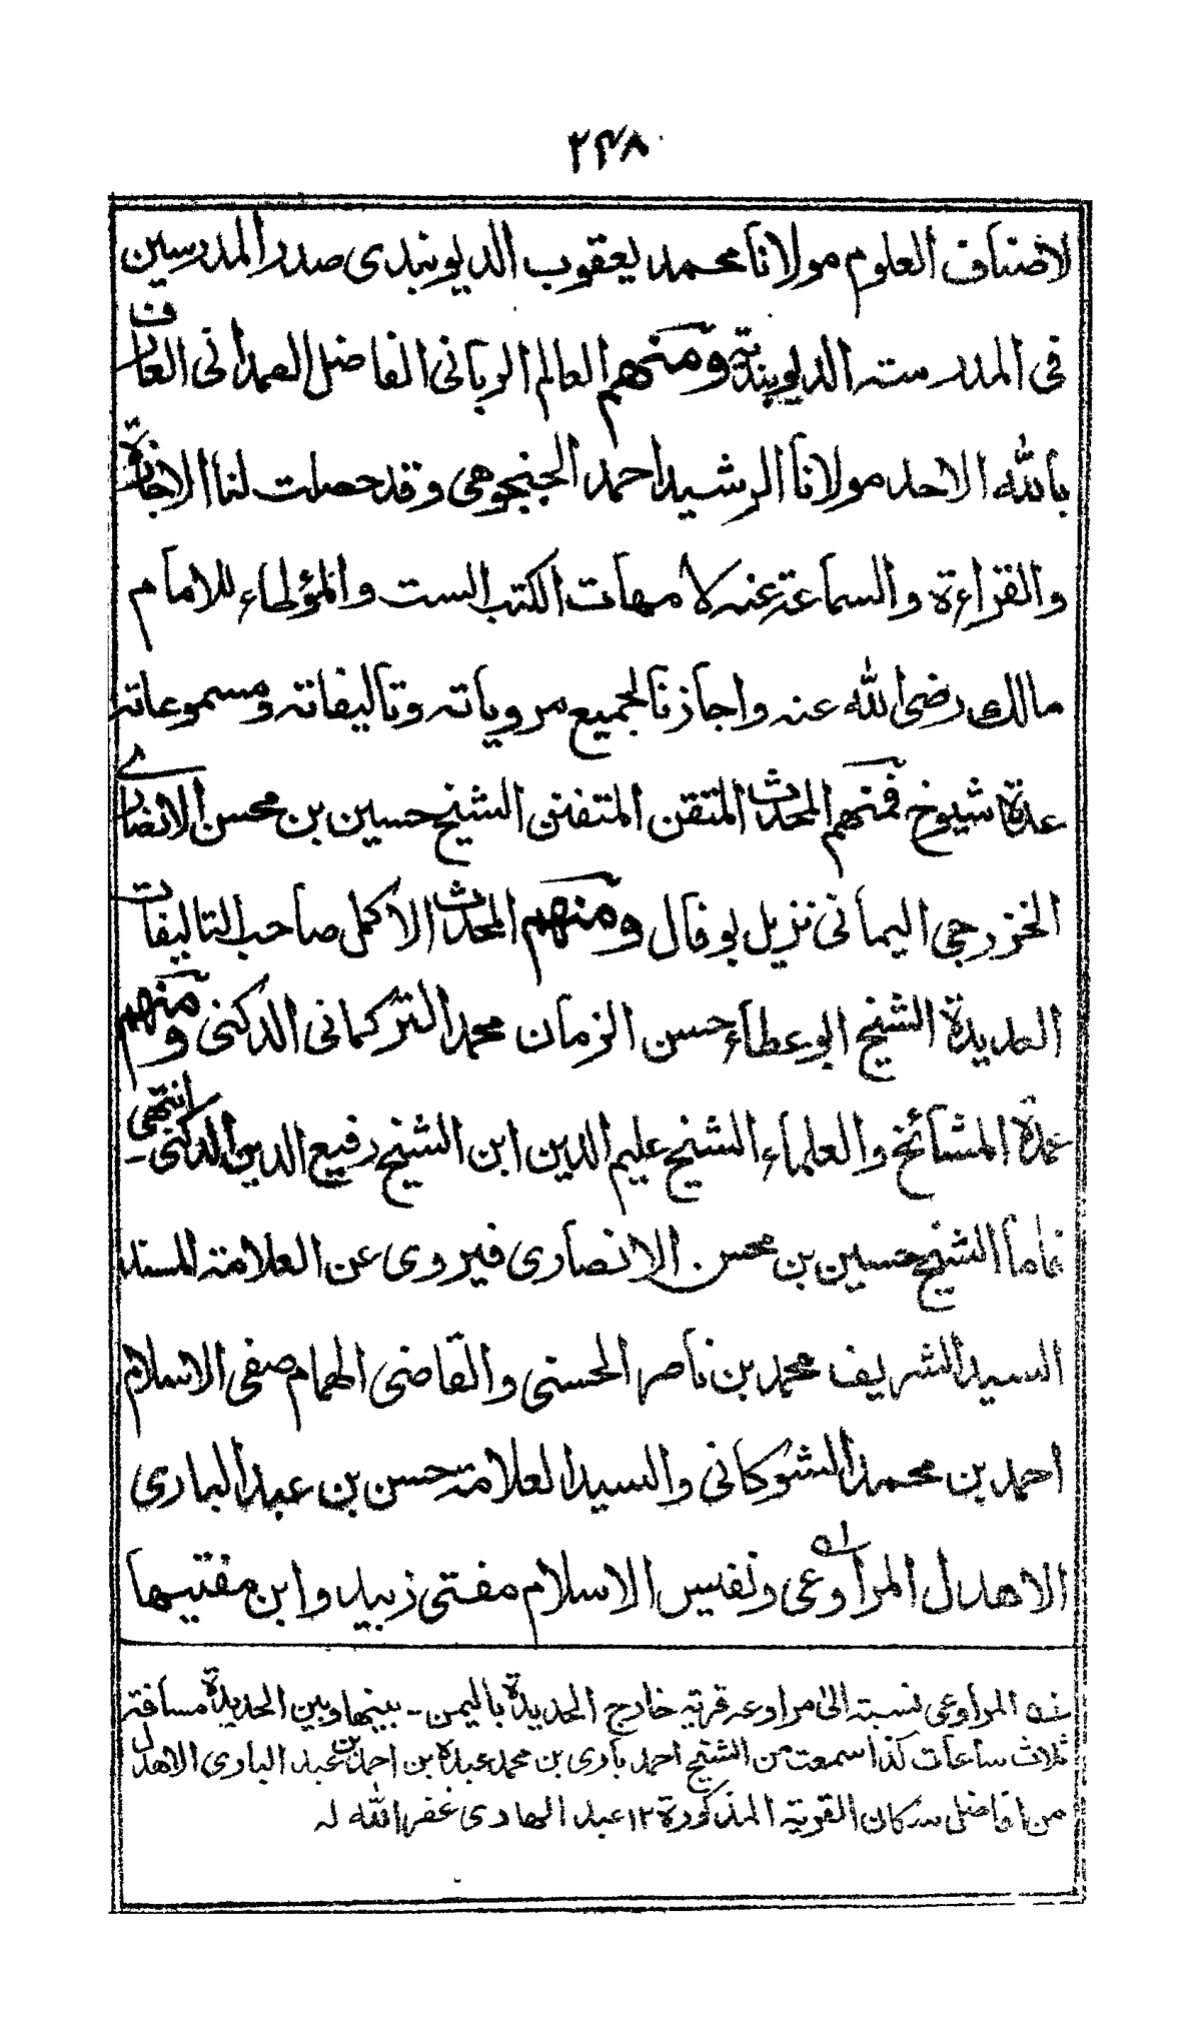 ۲۴۸
لاصناف العلوم مولانا محمد يعقوب الديوبندى صدر المدرسين
فى المدرسته الديوبندية ومنهم العالم الربانى الفاضل الصمدانى العارف
بالله الاحد مولانا الرشيد احمد الجنجوهى وقد حصلت لنا الاجازة
والقراءة والسماعة عنه لامهات الكتب الست والمؤطاء للامام
مالك رضى الله عنه واجازنا لجميع مروياته وتاليفاته ومسموعاته
عدة شيوخ فمنهم المحدث المتقن المتفنن الشيخ حسين بن محسن الانصارى
الخزرجى اليمانى نزيل بوفال ومنهم المحدث الاكمل صاحب التاليفات
العديدة الشيخ ابو عطاء حسن الزمان محمد التركمانى الدكنى ومنهم
عمدة المشائخ والعلماء الشيخ عليم الدين ابن الشيخ رفيع الدين الدكنى - انتهى
فاما الشيخ حسين بن محسن الانصارى فيروى عن العلامة المسند
السيد الشريف محمد بن ناصر الحسنى والقاضى الهمام صفى الاسلام
احمد بن محمد الشوكانى والسيد العلامة حسن بن عبد البارى
الاهدل المراوعى ونفيس الاسلام مفتى زبيد وابن مفتيها
المراوعى نسبة الى مراوعه قرية خارج الحديدة باليمن - بينها وبين الحديدة مسافة
ثلاث ساعات كذا سمعت من الشيخ احمد بارى بن محمد عبده بن احمد بن عبد البارى الاهدل
من افاضل سكان القرية المذكورة ۱۲ عبد الهادى غفر الله له